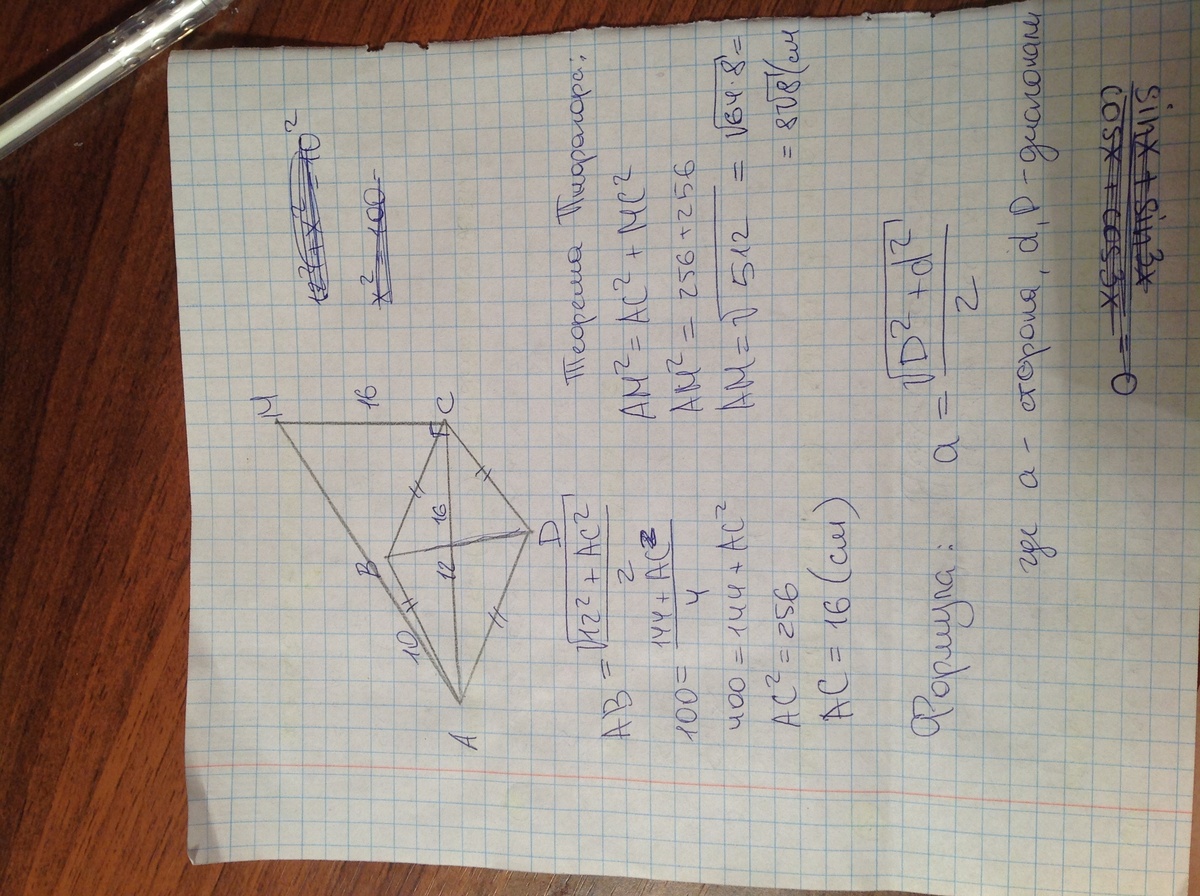 M
16
B
10
16
12
C
A
D
x² = 100 =
AB = √(12² + AC²) / 2
100 = (144 + AC²) / 4
400 = 144 + AC²
AC² = 256
AC = 16 (см)
Теорема Пифагора:
AM² = AC² + MC²
AM² = 256 + 256
AM = √512 = √64·8 =
= 8√8 (см
Формула: a = √(D² + d²) / 2
где a - сторона, d, D - диагонали
sinx + sin3x
cosx + cos3x = 0